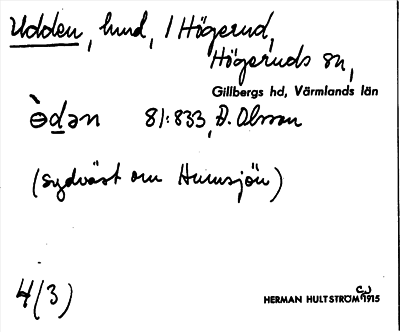 Udden, lund, 1 Högerud,
Högeruds sn,
Gillbergs hd, Värmlands län
ɵ̀dən 81:833, D. Olsson
(sydväst om Hurrsjön)
4(3)
HERMAN HULTSTRÖM 1915